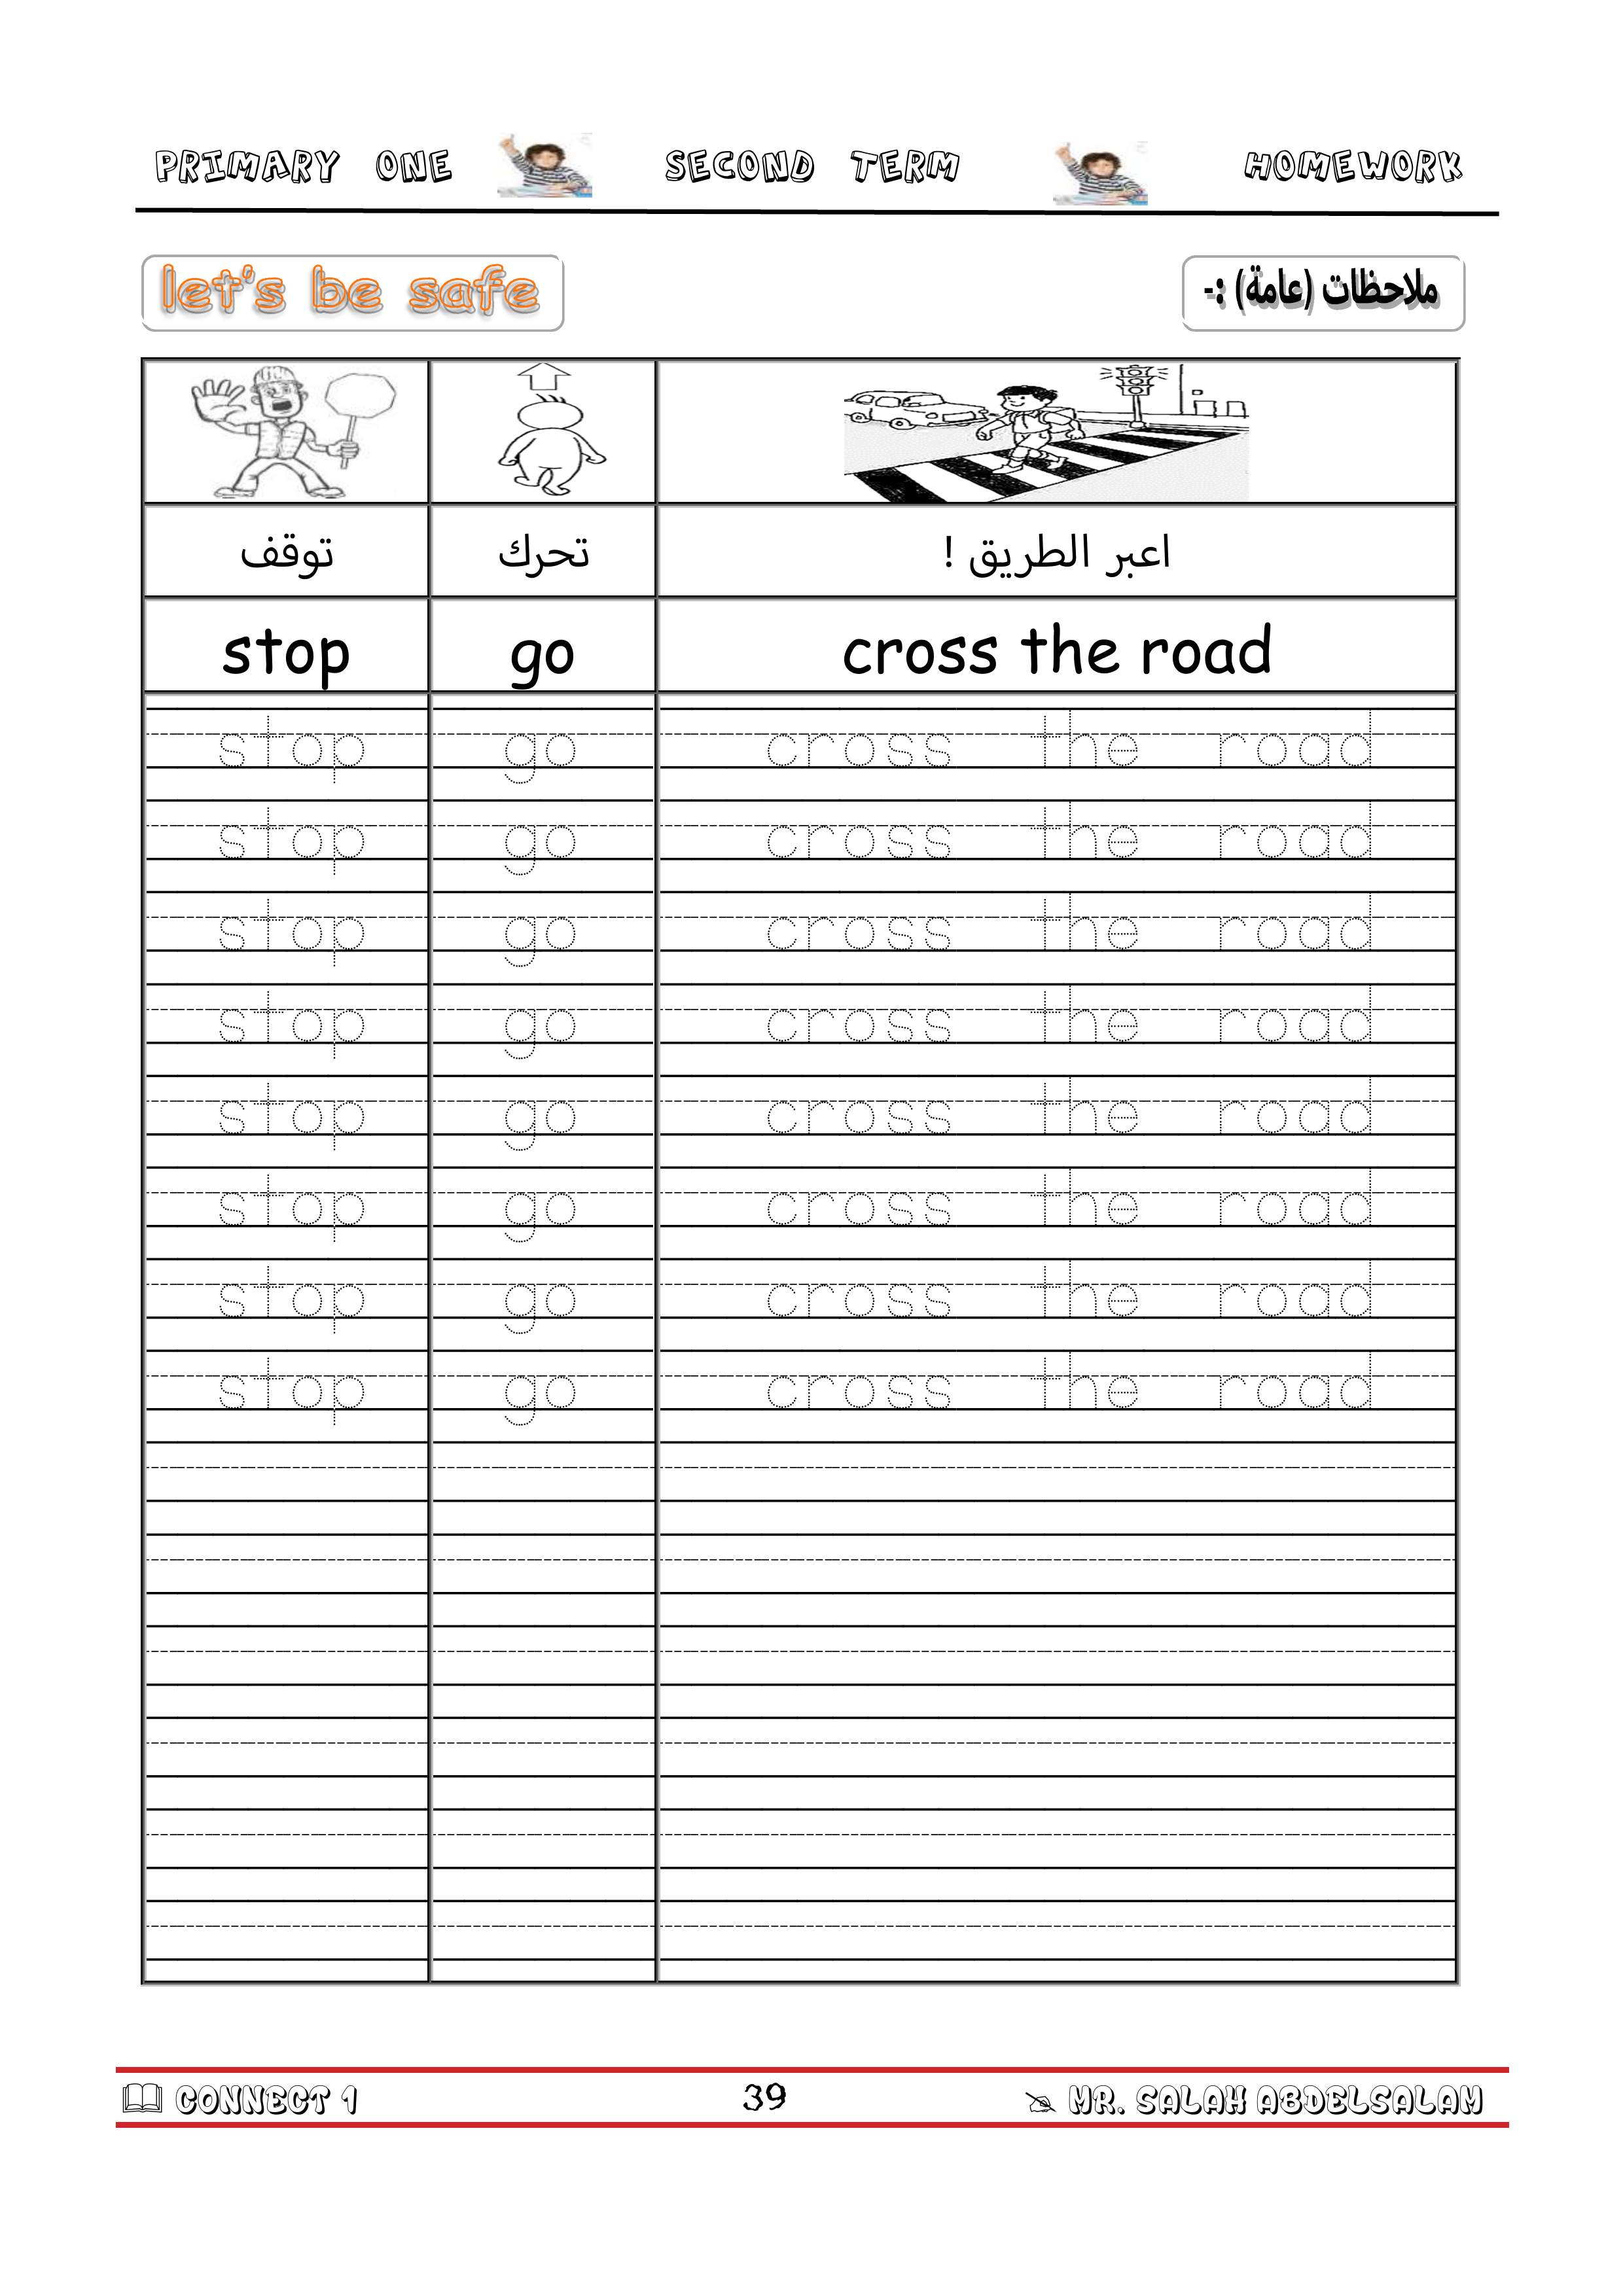 PRIMARY ONE SECOND TERM HOMEWORK
let's be safe
ملاحظات (عامة) :-
توقف تحرك اعبر الطريق !
stop go cross the road
stop go cross the road
stop go cross the road
stop go cross the road
stop go cross the road
stop go cross the road
stop go cross the road
stop go cross the road
stop go cross the road
CONNECT 1 39 MR. SALAH ABDELSALAM